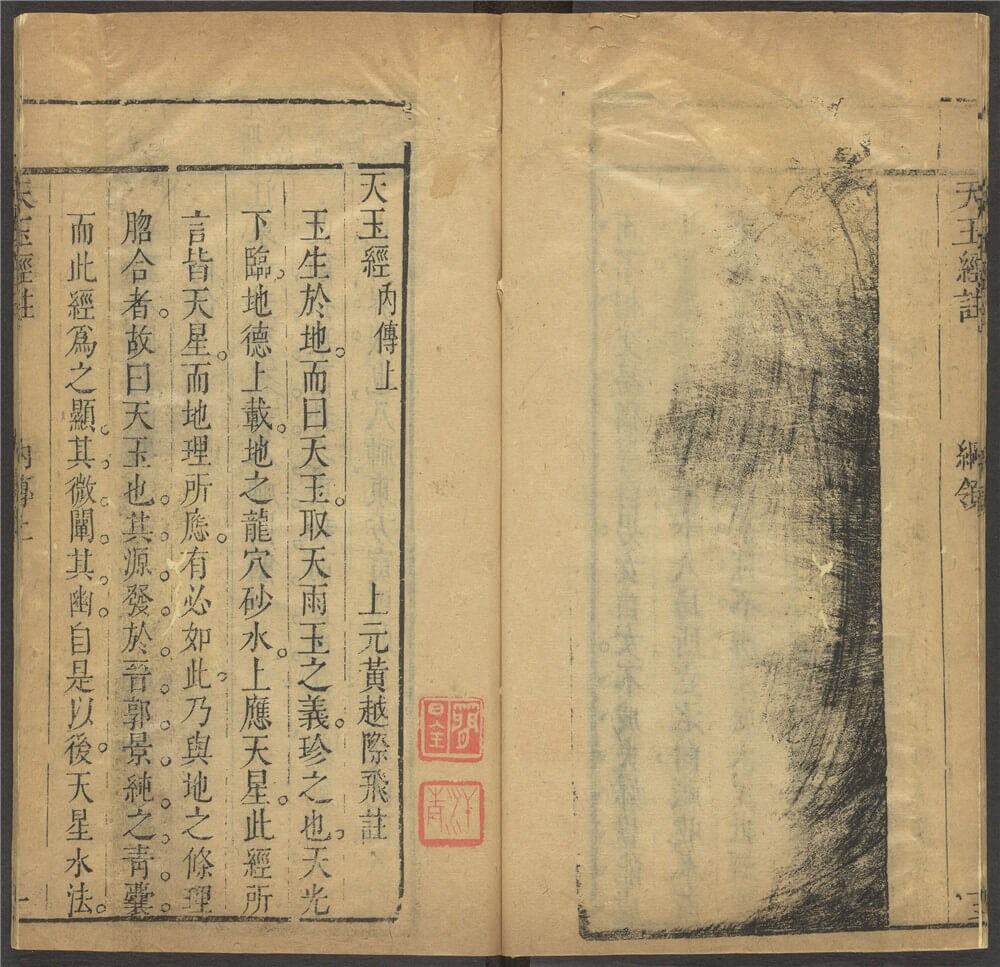 天王經註
綱領
十三
天玉經內傳上
上元黃越際飛註
玉生於地而曰天玉取天雨玉之義珍之也天光
下臨地德上載地之龍穴砂水上應天星此經所
言皆天星而地理所應有必如此乃與地之條理
脗合者故曰天玉也其源發於晉郭景純之青囊
而此經爲之顯其微闡其幽自是以後天星水法
天玉經註
內傳上
一